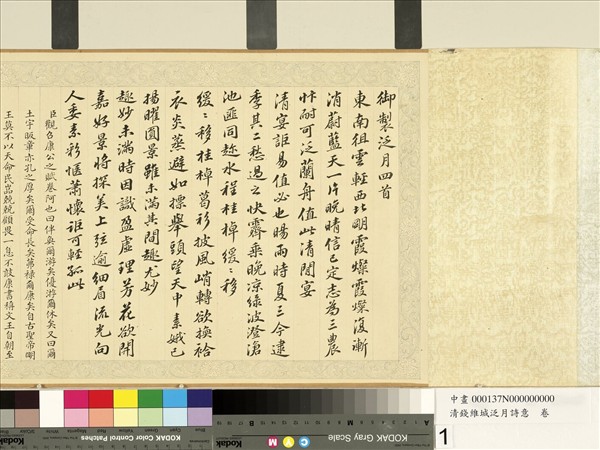 御製泛月四首
東南徂雲輕西北明霞燦霞燦復漸
消蔚藍天一片晚晴信已定志為三農
忭耐可泛蘭舟值此清閒宴
清宴詎易值必也暘雨時夏三今逮
季其二愁過之快霽乘晚凉綠波澄滄
池匪同遊水程桂棹緩〻移
緩〻移桂棹葛衫披風峭轉欲換袷
衣炎蒸避如摽舉頭望天中素娥已
揚曜圓景雖未滿其間趣尤妙
趣妙未滿時因識盈虛理芳花欲開
嘉好景將探美上弦逾細眉流光向
人委素彩愜蕭懷誰可輕孤此
臣觀召康公之賦卷阿也曰伴奐爾游矣優游爾休矣又曰爾
土宇昄章亦孔之厚矣爾受命長矣茀祿爾康矣自古聖帝明
王莫不以天命民嵒兢兢顧畏一息不敢康書稱文王自朝至
中畫 000137N000000000
清錢維城泛月詩意 卷
1
Kodak Color Control Patches
KODAK Gray Scale
C Y M
Kodak